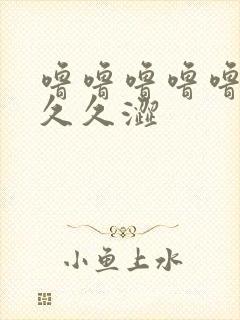 噜噜噜噜噜
久久澀
小鱼上水